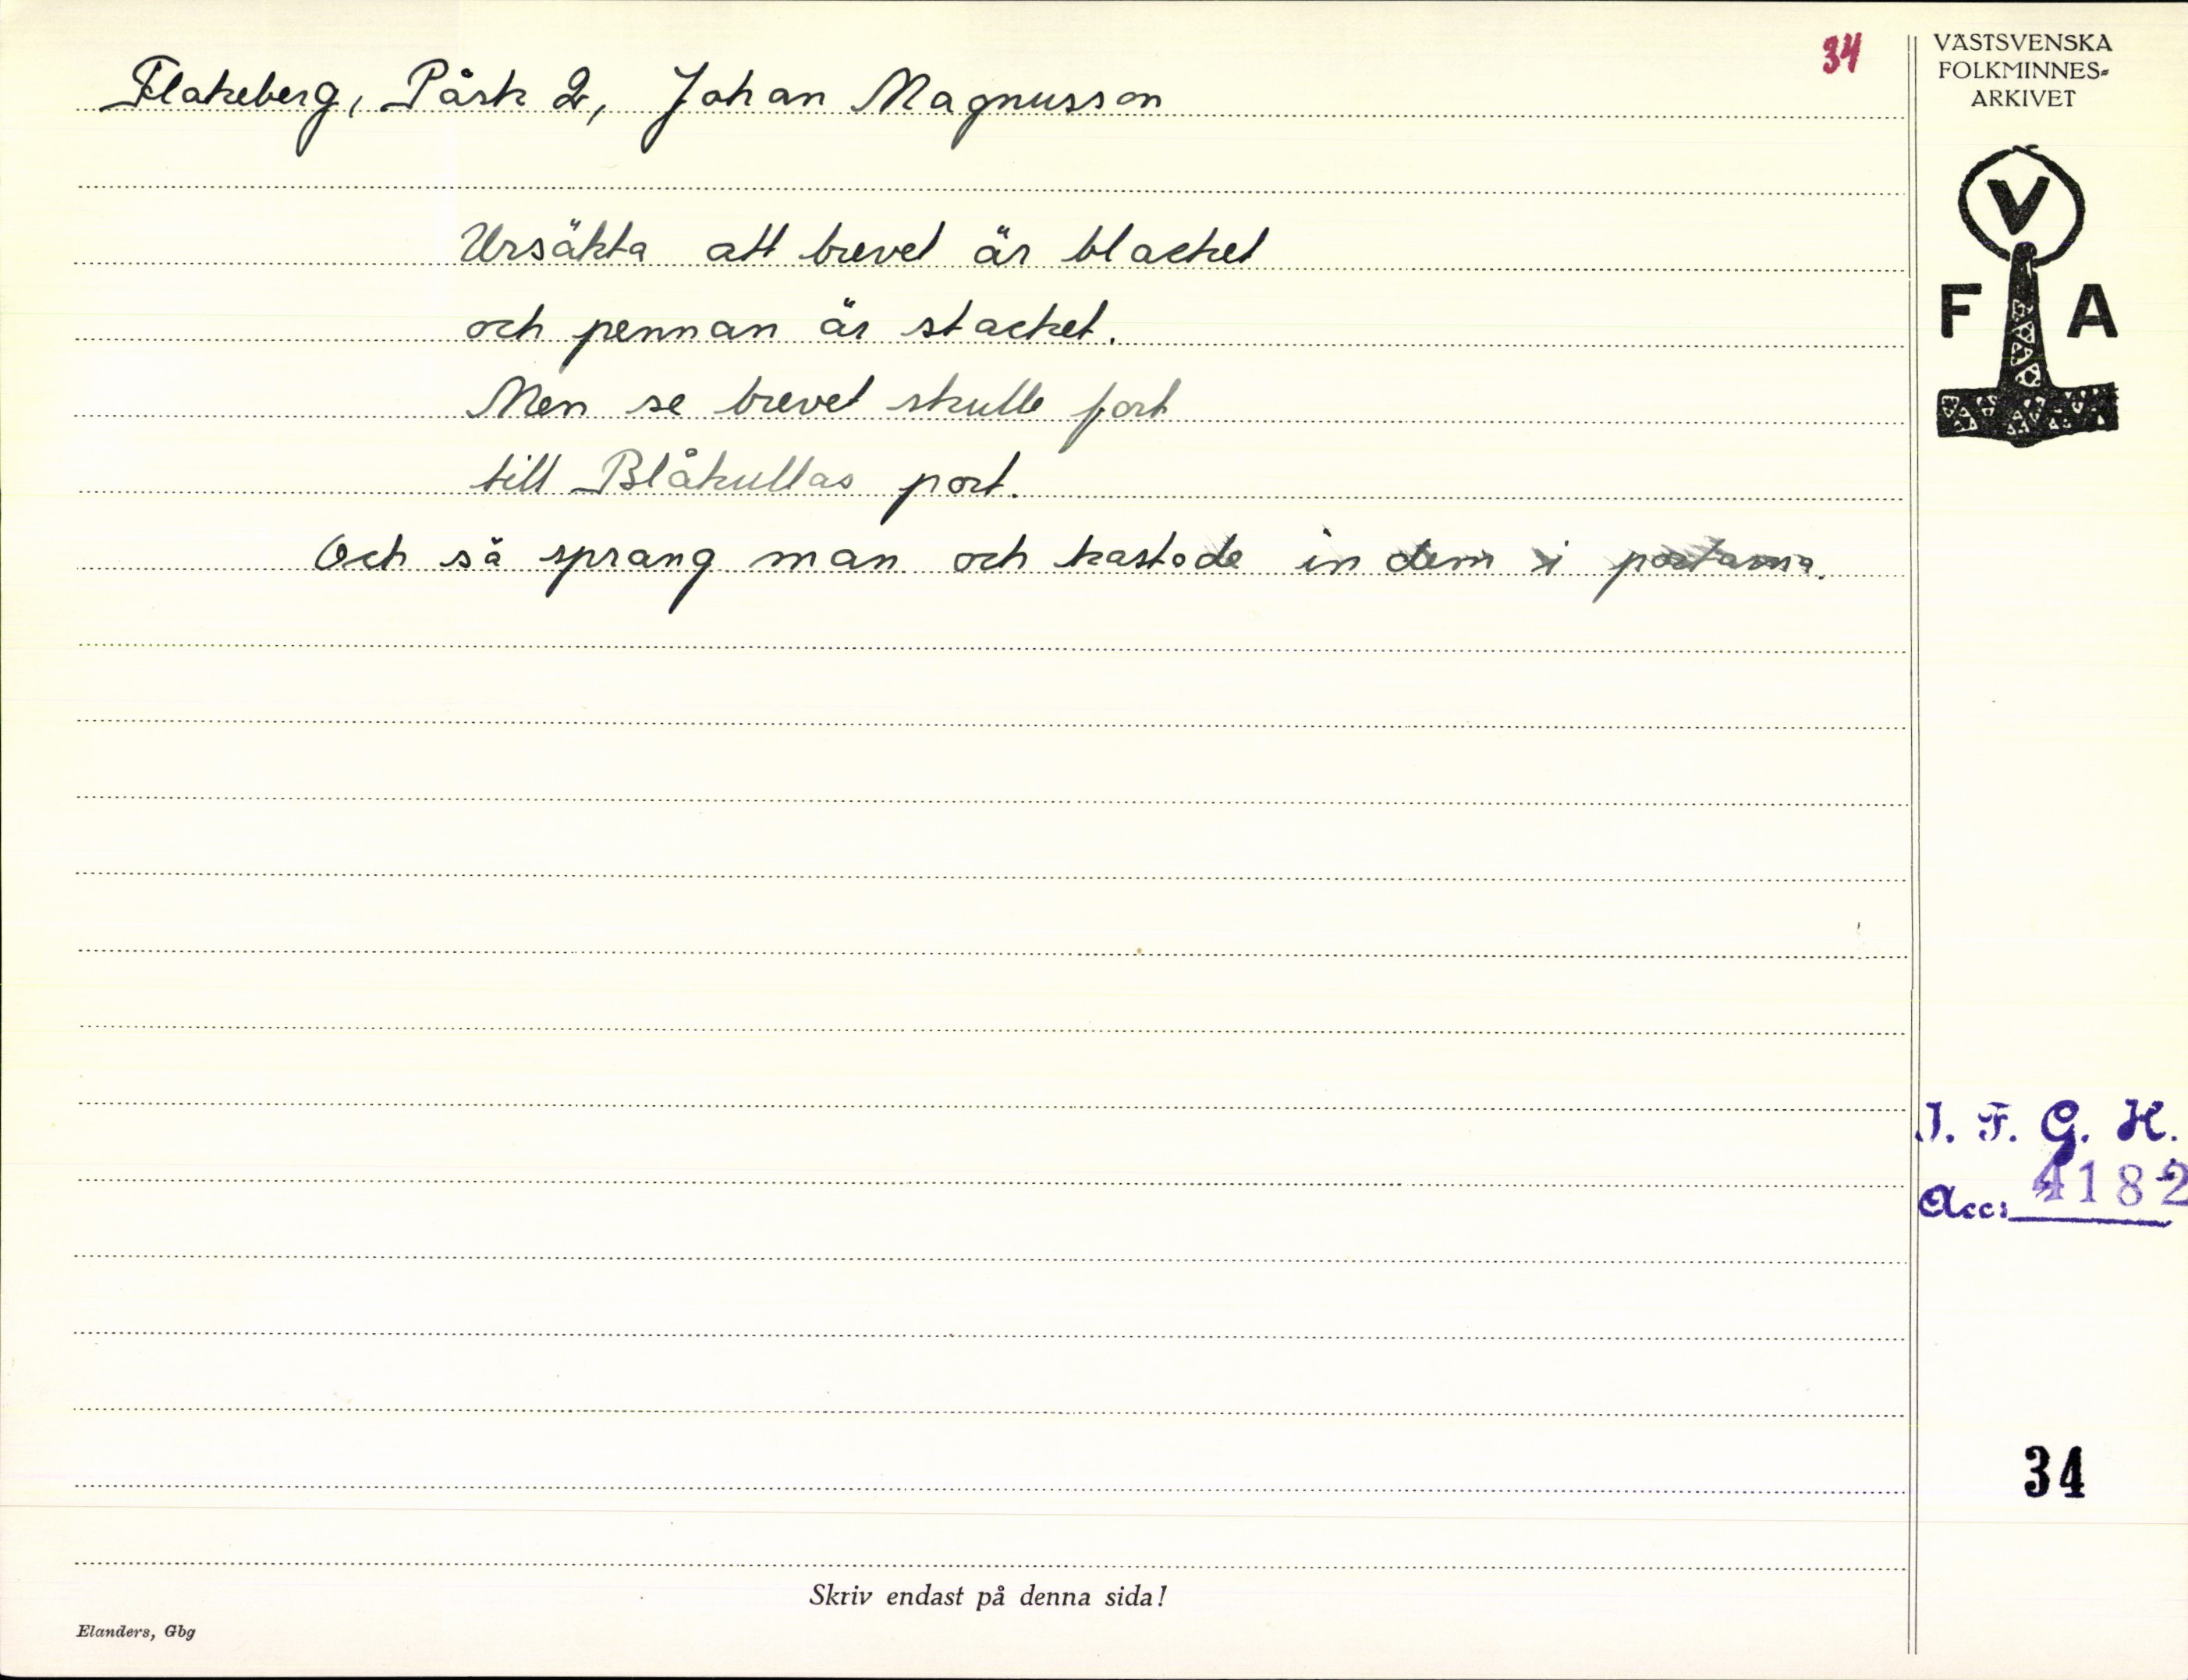 34
Flakeberg, Påsk 2, Johan Magnusson
Ursäkta att brevet är blacket
och pennan är stacket.
Men se brevet skulle fort
till Blåkullas port.
Och så sprang man och kastade in dem i portarna.
VÄSTSVENSKA
FOLKMINNES-
ARKIVET
V
F A
I. F. G. H.
Acc: 4182
34
Skriv endast på denna sida!
Elanders, Gbg